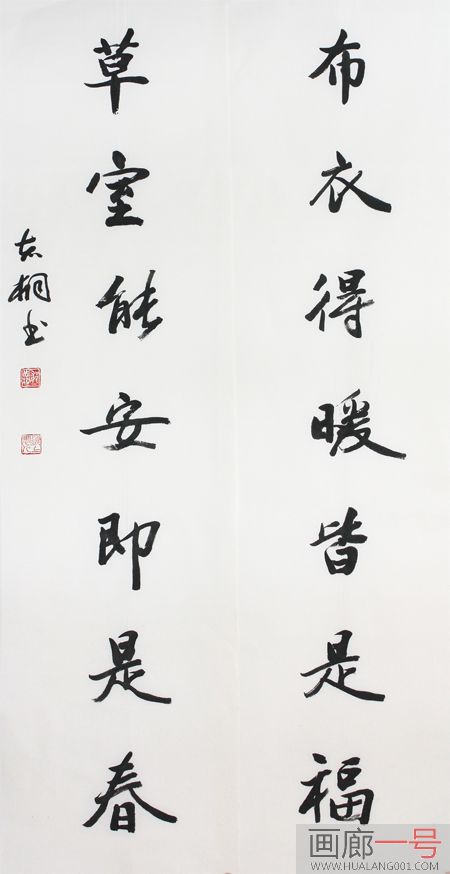 布衣得暖皆是福
草室能安即是春
桐书
画廊一号
WWW.HUALANG001.COM